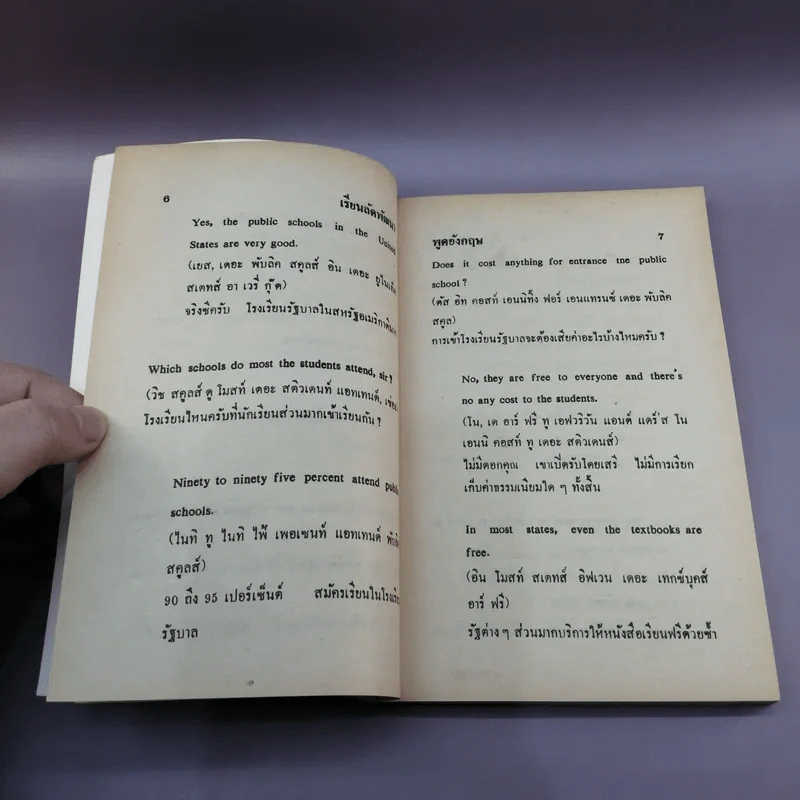 6
เรียนลัดพัฒนา
Yes, the public schools in the United
States are very good.
(เยส, เดอะ พับลิค สคูลส์ อิน เดอะ ยูไนเต็ด
สเตทส์ อาเวรี่ กู๊ด)
จริงซีครับ โรงเรียนรัฐบาลในสหรัฐอเมริกาดีมาก
Which schools do most the students attend, sir ?
(วิช สคูลส์ ดู โมสท์ เดอะ สติวเดนท์ แอทเทนด์,
โรงเรียนไหนครับที่นักเรียนส่วนมากเข้าเรียนกัน ?
Ninety to ninety five percent attend public
schools.
(ไนทิ ทู ไนทิ ไฟ้ เพอเซนท์ แอทเทนด์ พับลิค
สคูลส์)
90 ถึง 95 เปอร์เซ็นต์ สมัครเรียนในโรงเรียน
รัฐบาล
พูดอังกฤษ 7
Does it cost anything for entrance tne public
school ?
(ดัส อิท คอสท์ เอนนิทิ้ง ฟอร์ เอนแทรนซ์ เดอะ พับลิค
สคูล)
การเข้าโรงเรียนรัฐบาลจะต้องเสียค่าอะไรบ้างไหมครับ ?
No, they are free to everyone and there's
no any cost to the students.
(โน, เด อาร์ ฟรี ทู เอฟวริวัน แอนด์ แดร์'ส โน
เอนนิ คอสท์ ทู เดอะ สติวเดนส์)
ไม่มีดอกคุณ เขาเปิดรับโดยเสรี ไม่มีการเรียก
เก็บค่าธรรมเนียมใด ๆ ทั้งสิ้น
In most states, even the textbooks are
free.
(อิน โมสท์ สเตทส์ อิฟเวน เดอะ เทกซ์บุคส์
อาร์ ฟรี)
รัฐต่าง ๆ ส่วนมากบริการให้หนังสือเรียนฟรีด้วยซ้ำ